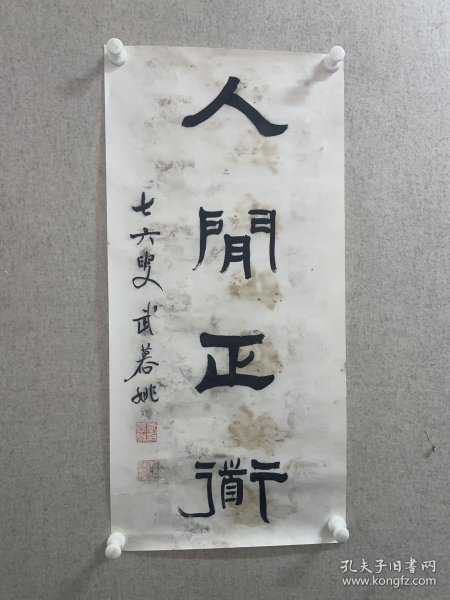 人閒正衜
七六叟武慕姚
孔夫子旧书网
www.kongfz.com